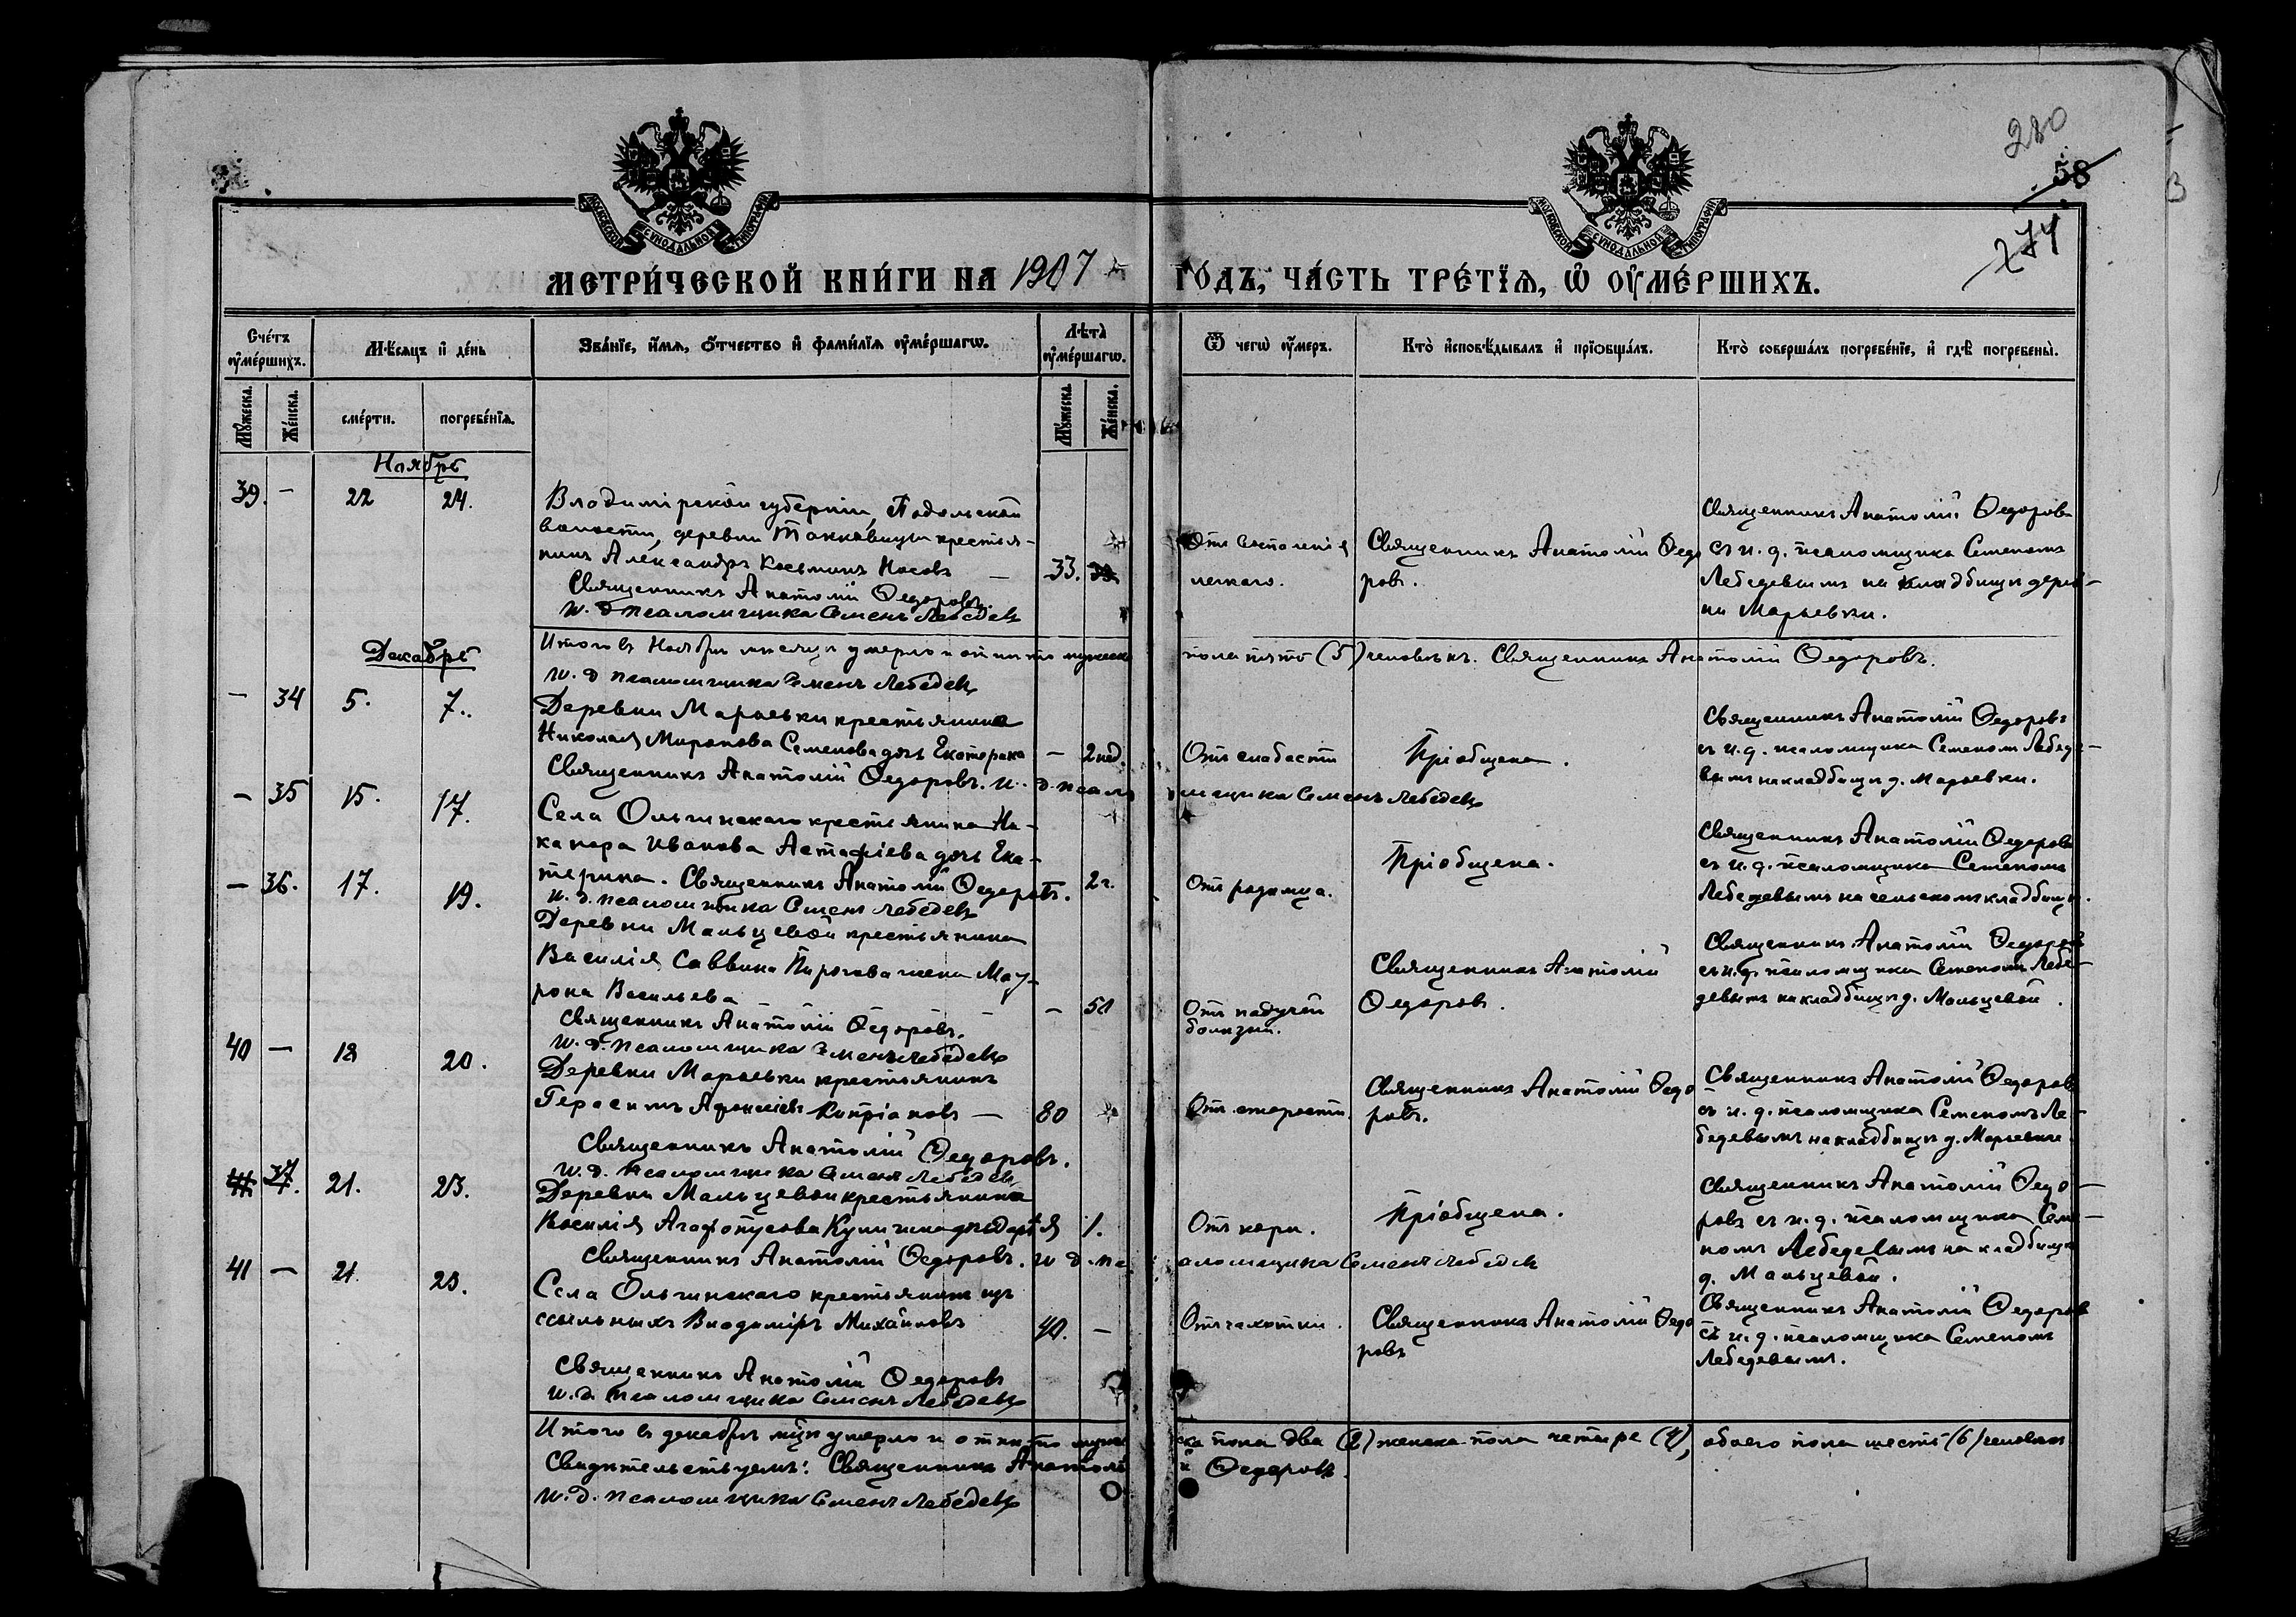 280
58
274
МОСКОВСКОЙ СѴНОДАЛЬНОЙ ТИПОГРАФІИ
МОСКОВСКОЙ СѴНОДАЛЬНОЙ ТИПОГРАФІИ
МЕТРИ́ЧЕСКОЙ КНИ́ГИ НА 1907
ГО́ДЪ, ЧА́СТЬ ТРЕ́ТЇѦ, Ѡ҆ ОУ҆МЕ́РШИХЪ.
Сче́тъ оу҆ме́ршихъ.
Мѣ́сѧцъ и҆ де́нь
Зва́нїе, и҆́мѧ, ѻ҆́тчество и҆ фами́лїѧ оу҆ме́ршагѡ.
Лѣ́та оу҆ме́ршагѡ.
Ѿ чегѡ̀ оу҆́меръ.
Кто̀ и҆сповѣ́дывалъ и҆ прїѡбща́лъ.
Кто̀ соверша́лъ погребе́нїе, и҆ гдѣ̀ погребены̀.
Му́жеска.
Же́нска.
сме́рти.
погребе́нїѧ.
Му́жеска.
Же́нска.
Ноябрь
39. - 22 24.
Владимірской губерніи, Подольской
волости, деревни крестья-
нинъ Александръ Косьминъ Носовъ — 33.
Священникъ Анатолій Ѳедоровъ.
И. д. псаломщика Семенъ Лебедевъ
Отъ воспаленія
легкаго.
Священникъ Анатолій Ѳедо
ровъ.
Священникъ Анатолій Ѳедоровъ
съ и. д. псаломщика Семеномъ
Лебедевымъ на кладбищѣ дерев-
ни Марьевки.
Итого въ Ноябрѣ мѣсяцѣ умерло и отпѣто мужеска
пола пять (5) человѣкъ. Священникъ Анатолій Ѳедоровъ.
И. д. псаломщика Семенъ Лебедевъ
Декабрь
- 34 5. 7.
Деревни Марьевки крестьянина
Николая Миронова Семенова дочь Екатерина - 2 нед.
Священникъ Анатолій Ѳедоровъ. И. д. псало
мщика Семенъ Лебедевъ
Отъ слабости
Пріобщена.
Священникъ Анатолій Ѳедоровъ
съ и. д. псаломщика Семеномъ Лебеде-
вымъ на кладбищѣ д. Марьевки.
- 35 15. 17.
Села Ольгинскаго крестьянина Ни-
канора Иванова Астафіева дочь Ека-
терина. Священникъ Анатолій Ѳедоровъ. 2 г.
И. д. псаломщика Семенъ Лебедевъ
Отъ родимца.
Пріобщена.
Священникъ Анатолій Ѳедоровъ
съ и. д. псаломщика Семеномъ
Лебедевымъ на сельскомъ кладбищѣ.
- 36. 17. 19.
Деревни Мальцевой крестьянина
Василія Саввина Пирогова жена Мат-
рона Васильева - 50
Священникъ Анатолій Ѳедоровъ.
И. д. псаломщика Семенъ Лебедевъ
Отъ падучей
болѣзни.
Священникъ Анатолій
Ѳедоровъ.
Священникъ Анатолій Ѳедоровъ
съ и. д. псаломщика Семеномъ Лебе-
девымъ на кладбищѣ д. Мальцевой.
40 - 18 20.
Деревни Марьевки крестьянинъ
Герасимъ Кипріановъ — 80
Священникъ Анатолій Ѳедоровъ.
И. д. псаломщика Семенъ Лебедевъ
Отъ старости.
Священникъ Анатолій Ѳедо
ровъ.
Священникъ Анатолій Ѳедоровъ
съ и. д. псаломщика Семеномъ Ле-
бедевымъ на кладбищѣ д. Марьевки.
37. 21. 23.
Деревни Мальцевой крестьянина
Василія дочь Дарья 1.
Священникъ Анатолій Ѳедоровъ. И. д. пс
аломщика Семенъ Лебедевъ
Отъ кори.
Пріобщена.
Священникъ Анатолій Ѳедо-
ровъ съ и. д. псаломщика Семе-
номъ Лебедевымъ на кладбищѣ
д. Мальцевой.
41 - 21. 23.
Села Ольгинскаго крестьянинъ изъ
ссыльныхъ Владиміръ Михайловъ 40. -
Священникъ Анатолій Ѳедоровъ
И. д. псаломщика Семенъ Лебедевъ
Отъ чахотки.
Священникъ Анатолій Ѳедо
ровъ
Священникъ Анатолій Ѳедоровъ
съ и. д. псаломщика Семеномъ
Лебедевымъ.
Итого въ декабрѣ мѣсяцѣ умерло и отпѣто муже
ска пола два (2) женска пола четыре (4), обоего пола шесть (6) человѣкъ
Свидѣтельствуемъ: Священникъ Анатолі
й Ѳедоровъ.
И. д. псаломщика Семенъ Лебедевъ